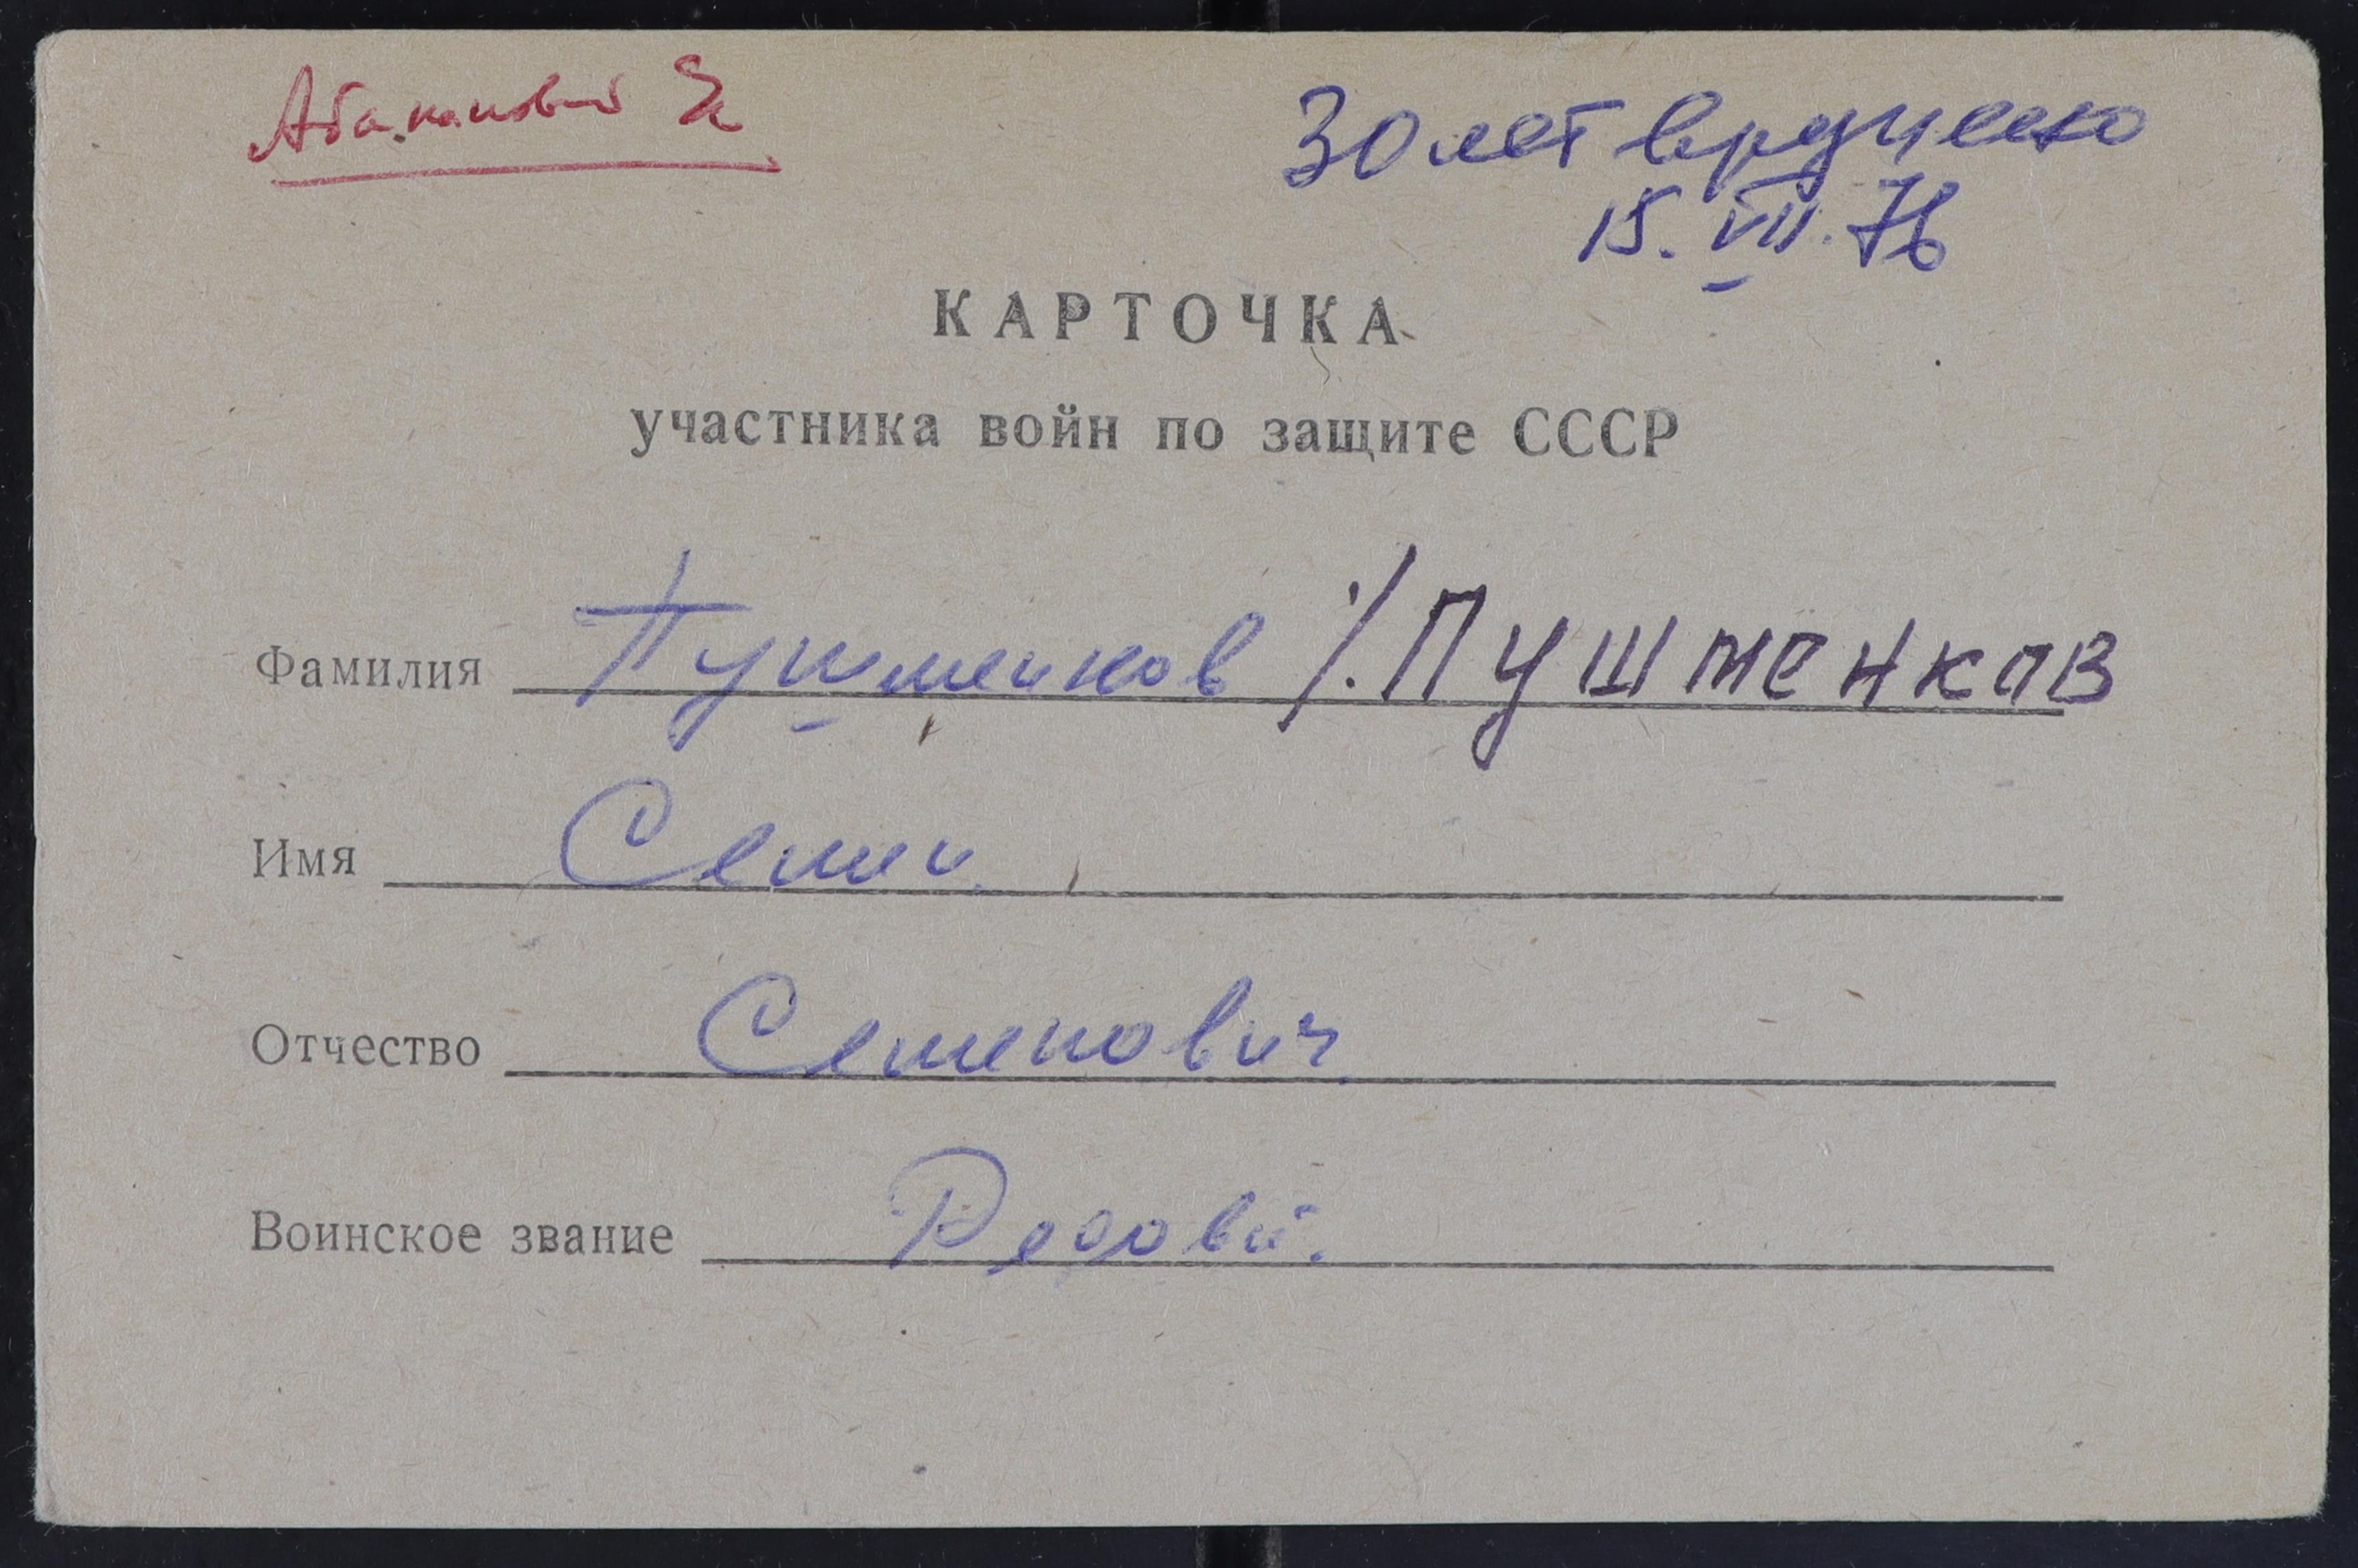 30 лет вручено
15. VII. 76
КАРТОЧКА
участника войн по защите СССР
Фамилия Пушменков /. Пушменков
Имя Семен
Отчество Семенович
Воинское звание Рядовой.